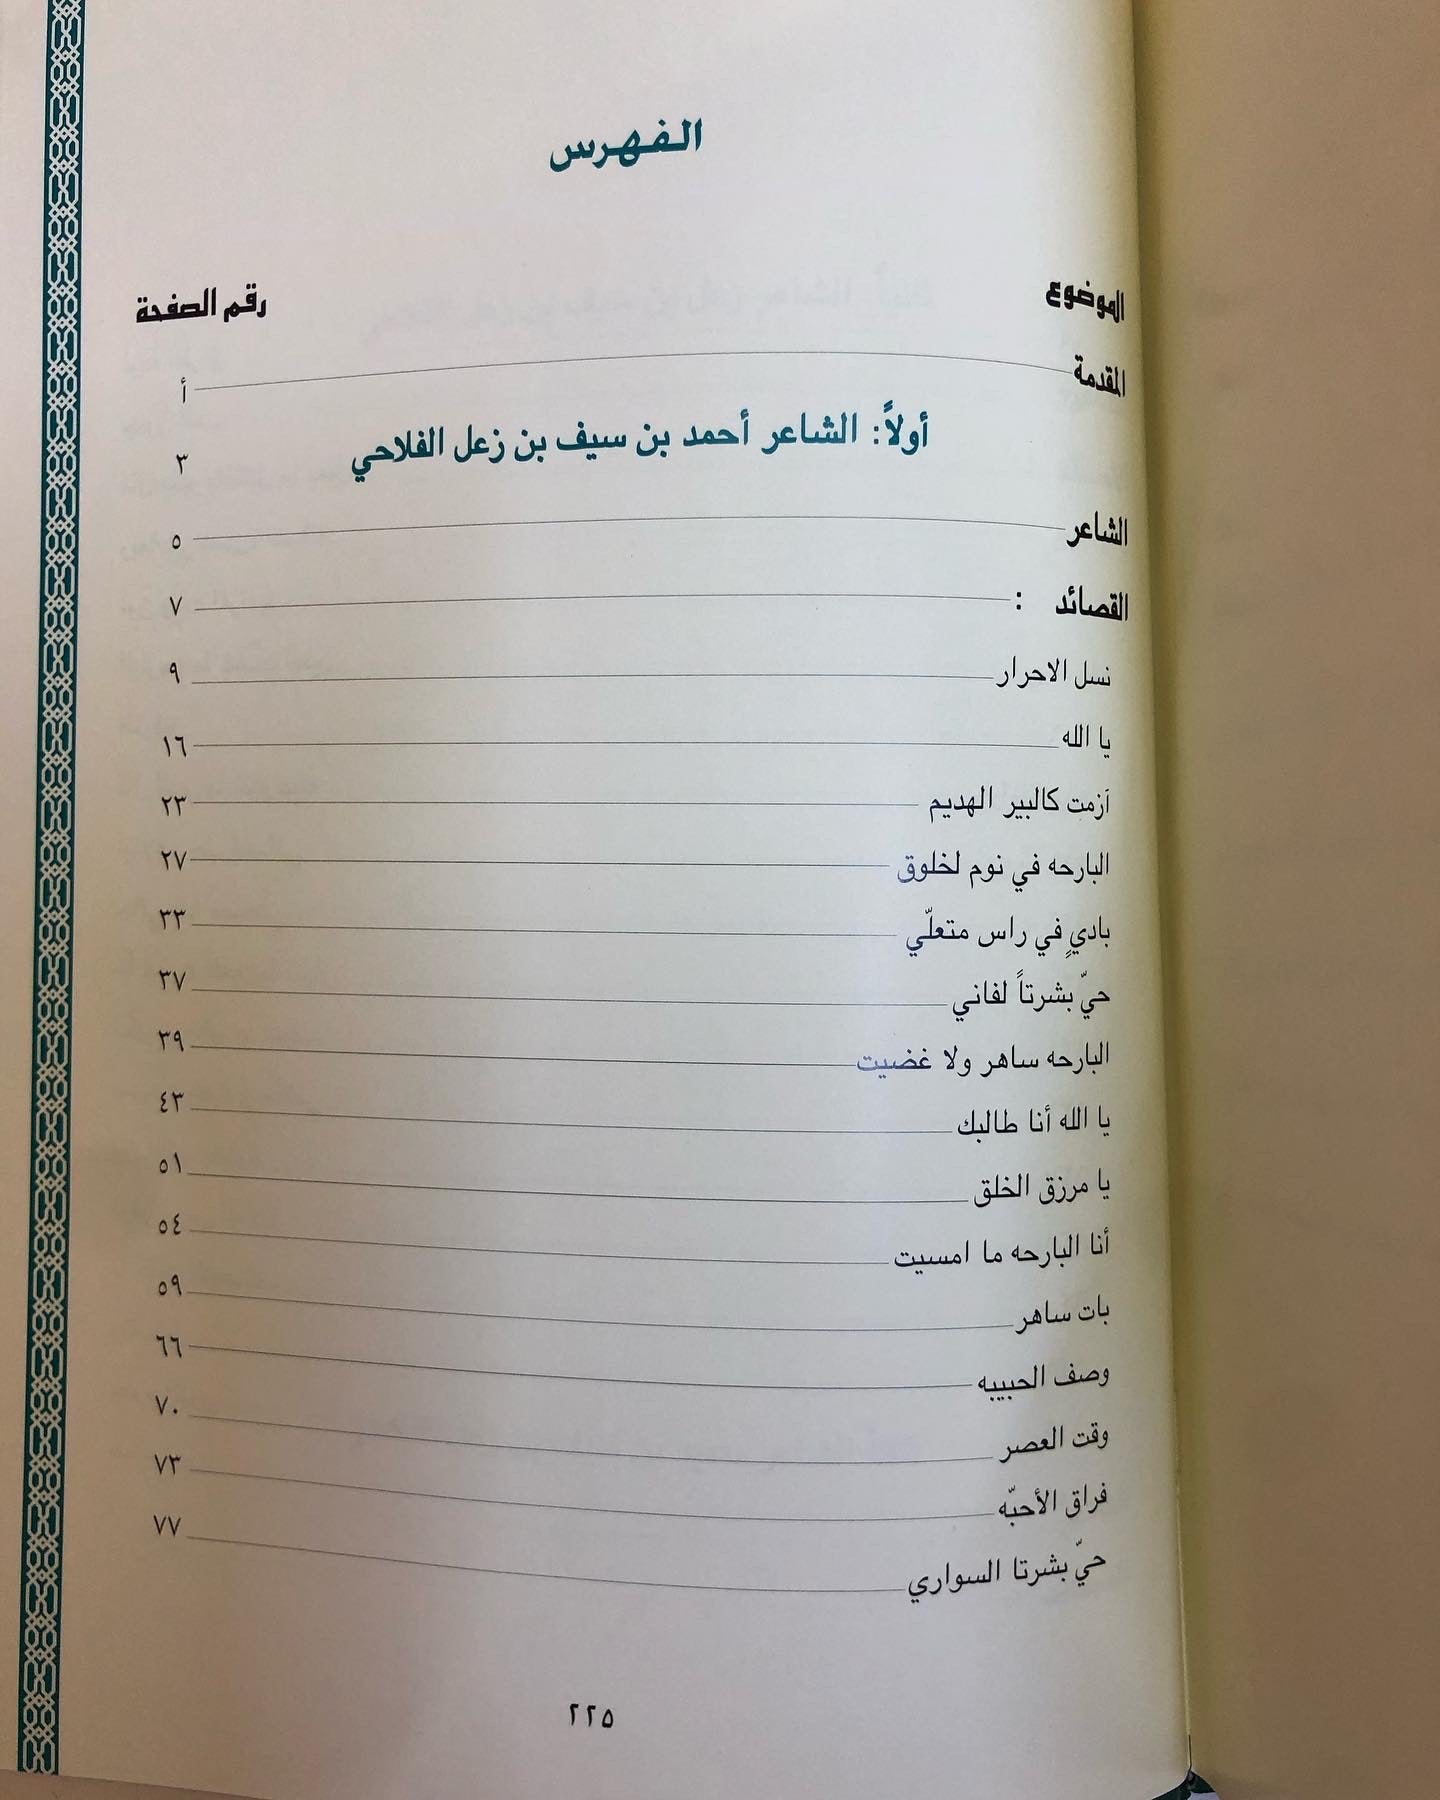 الفهرس
الموضوع رقم الصفحة
المقدمة أ
أولاً: الشاعر أحمد بن سيف بن زعل الفلاحي ٣
الشاعر ٥
القصائد : ٧
نسل الاحرار ٩
يا الله ١٦
آزمت كالبير الهديم ٢٣
البارحه في نوم لخلوق ٢٧
باديٍ في راس متعلّي ٣٣
حيّ بشرتاً لفاني ٣٧
البارحه ساهر ولا غضيت ٣٩
يا الله أنا طالبك ٤٣
يا مرزق الخلق ٥١
أنا البارحه ما امسيت ٥٤
بات ساهر ٥٩
وصف الحبيبه ٦٦
وقت العصر ٧٠
فراق الأحبّه ٧٣
حيّ بشرتا السواري ٧٧
٢٢٥